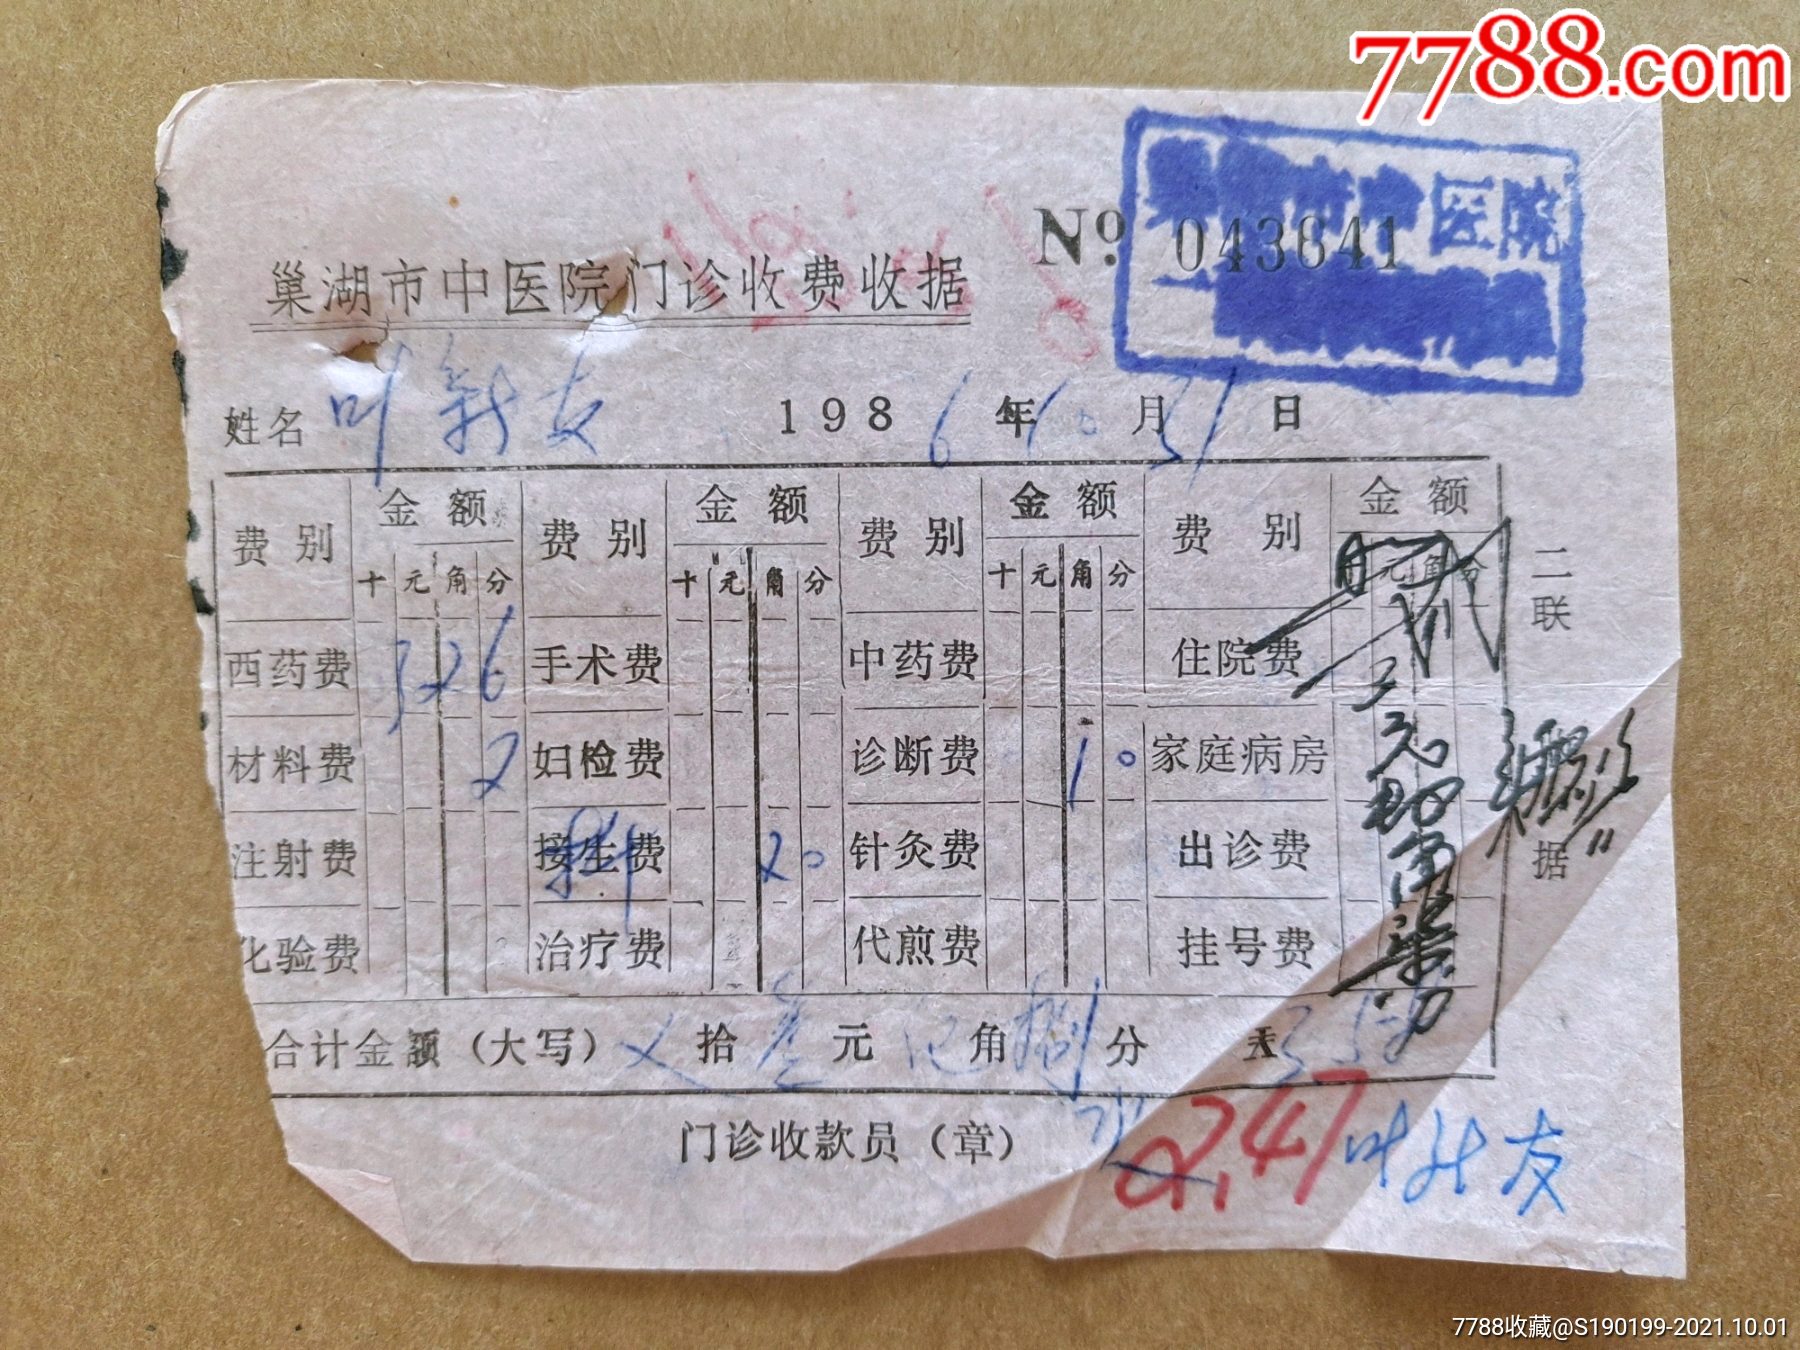 7788.com
医院
No. 043641
巢湖市中医院门诊收费收据
姓名 叶新友 1986年10月31日
费别 金额 费别 金额 费别 金额 费别 金额
十 元 角 分 十 元 角 分 十 元 角 分 元 角 分
西药费 3 2 6 手术费 中药费 住院费
材料费 2 妇检费 诊断费 10 家庭病房
注射费 接生费 20 针灸费 出诊费
化验费 治疗费 代煎费 挂号费
二联
据
合计金额（大写） 拾 叁 元 角 捌 分 3.58
门诊收款员（章）
2.47
叶新友
7788收藏@S190199-2021.10.01